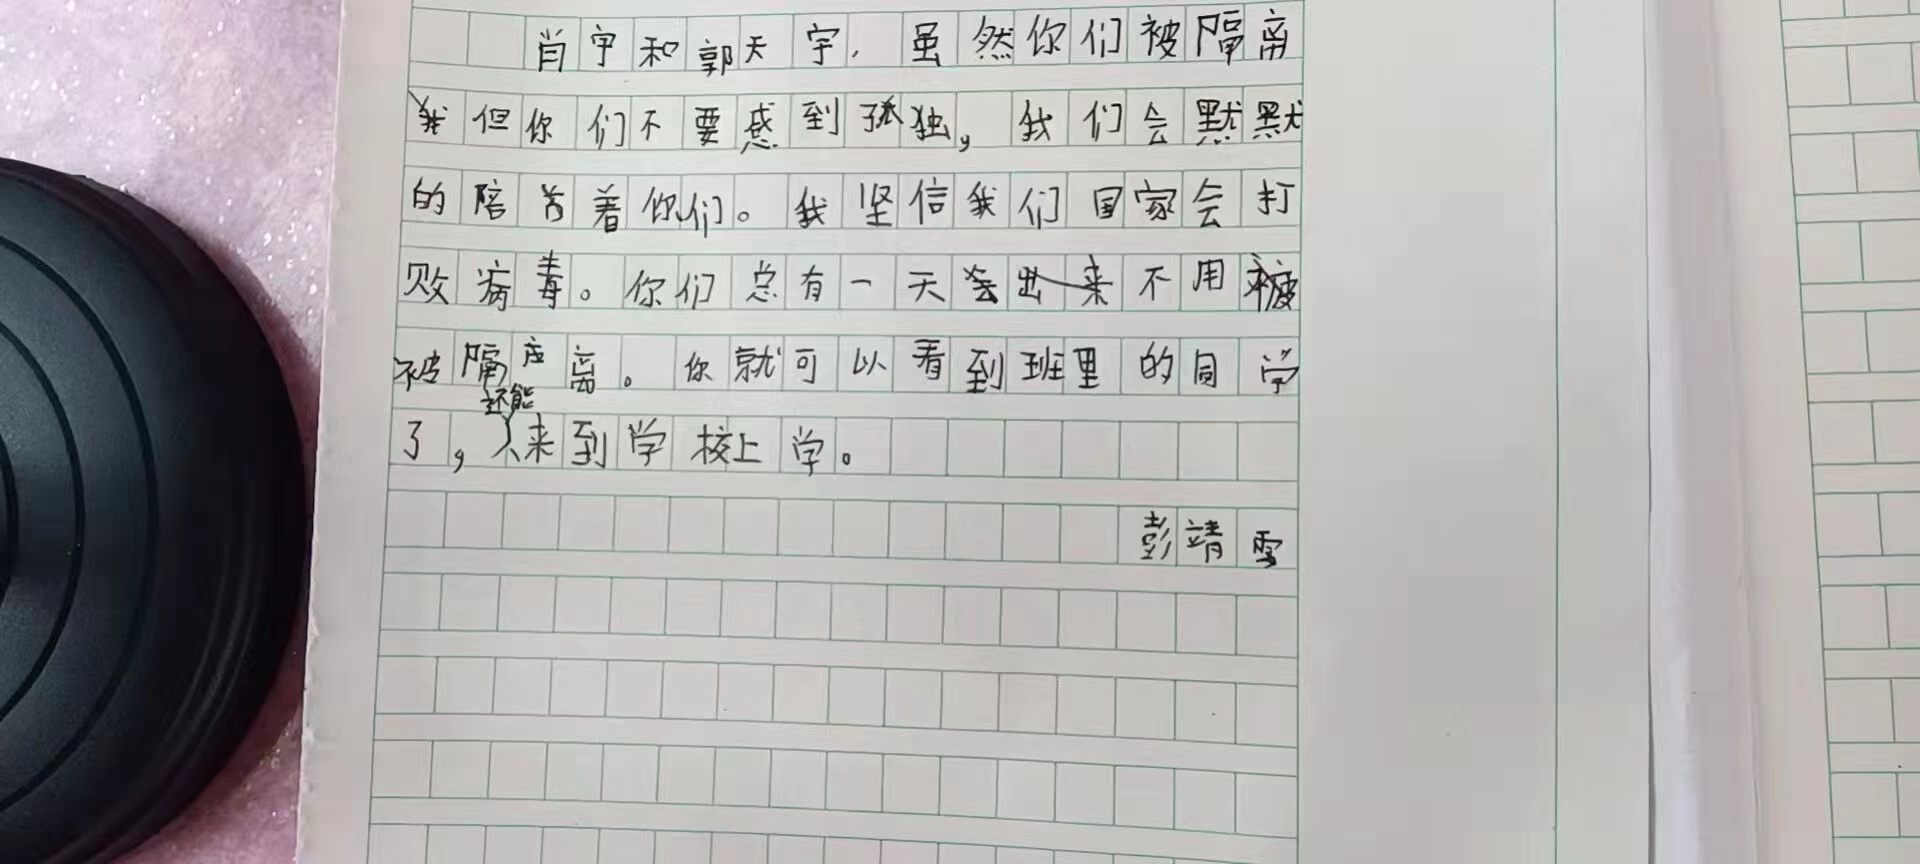 肖宇和郭天宇，虽然你们被隔离
但你们不要感到孤独，我们会默默
的陪着你们。我坚信我们国家会打
败病毒。你们总有一天不用
被隔离。你就可以看到班里的同学
了，还能来到学校上学。
彭靖雪